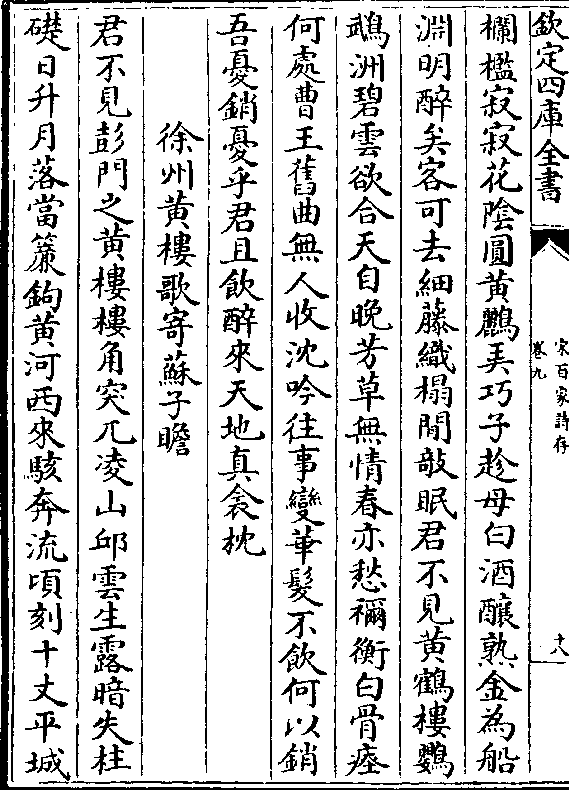 欽定四庫全書
宋百家詩存
卷九
十八
欄檻寂寂花陰圓黃鸝美巧子趁母白酒釀熟金為船
淵明醉矣客可去細藤織榻閒敧眠君不見黃鶴樓鸚
鵡洲碧雲欲合天自晚芳草無情春亦愁禰衡白骨瘞
何處曹王舊曲無人收沈吟往事變華髮不飲何以銷
吾憂銷憂乎君且飲醉來天地真衾枕
徐州黃樓歌寄蘇子瞻
君不見彭門之黃樓樓角突兀凌山邱雲生露暗失柱
礎日升月落當簾鉤黃河西來駭奔流頃刻十丈平城